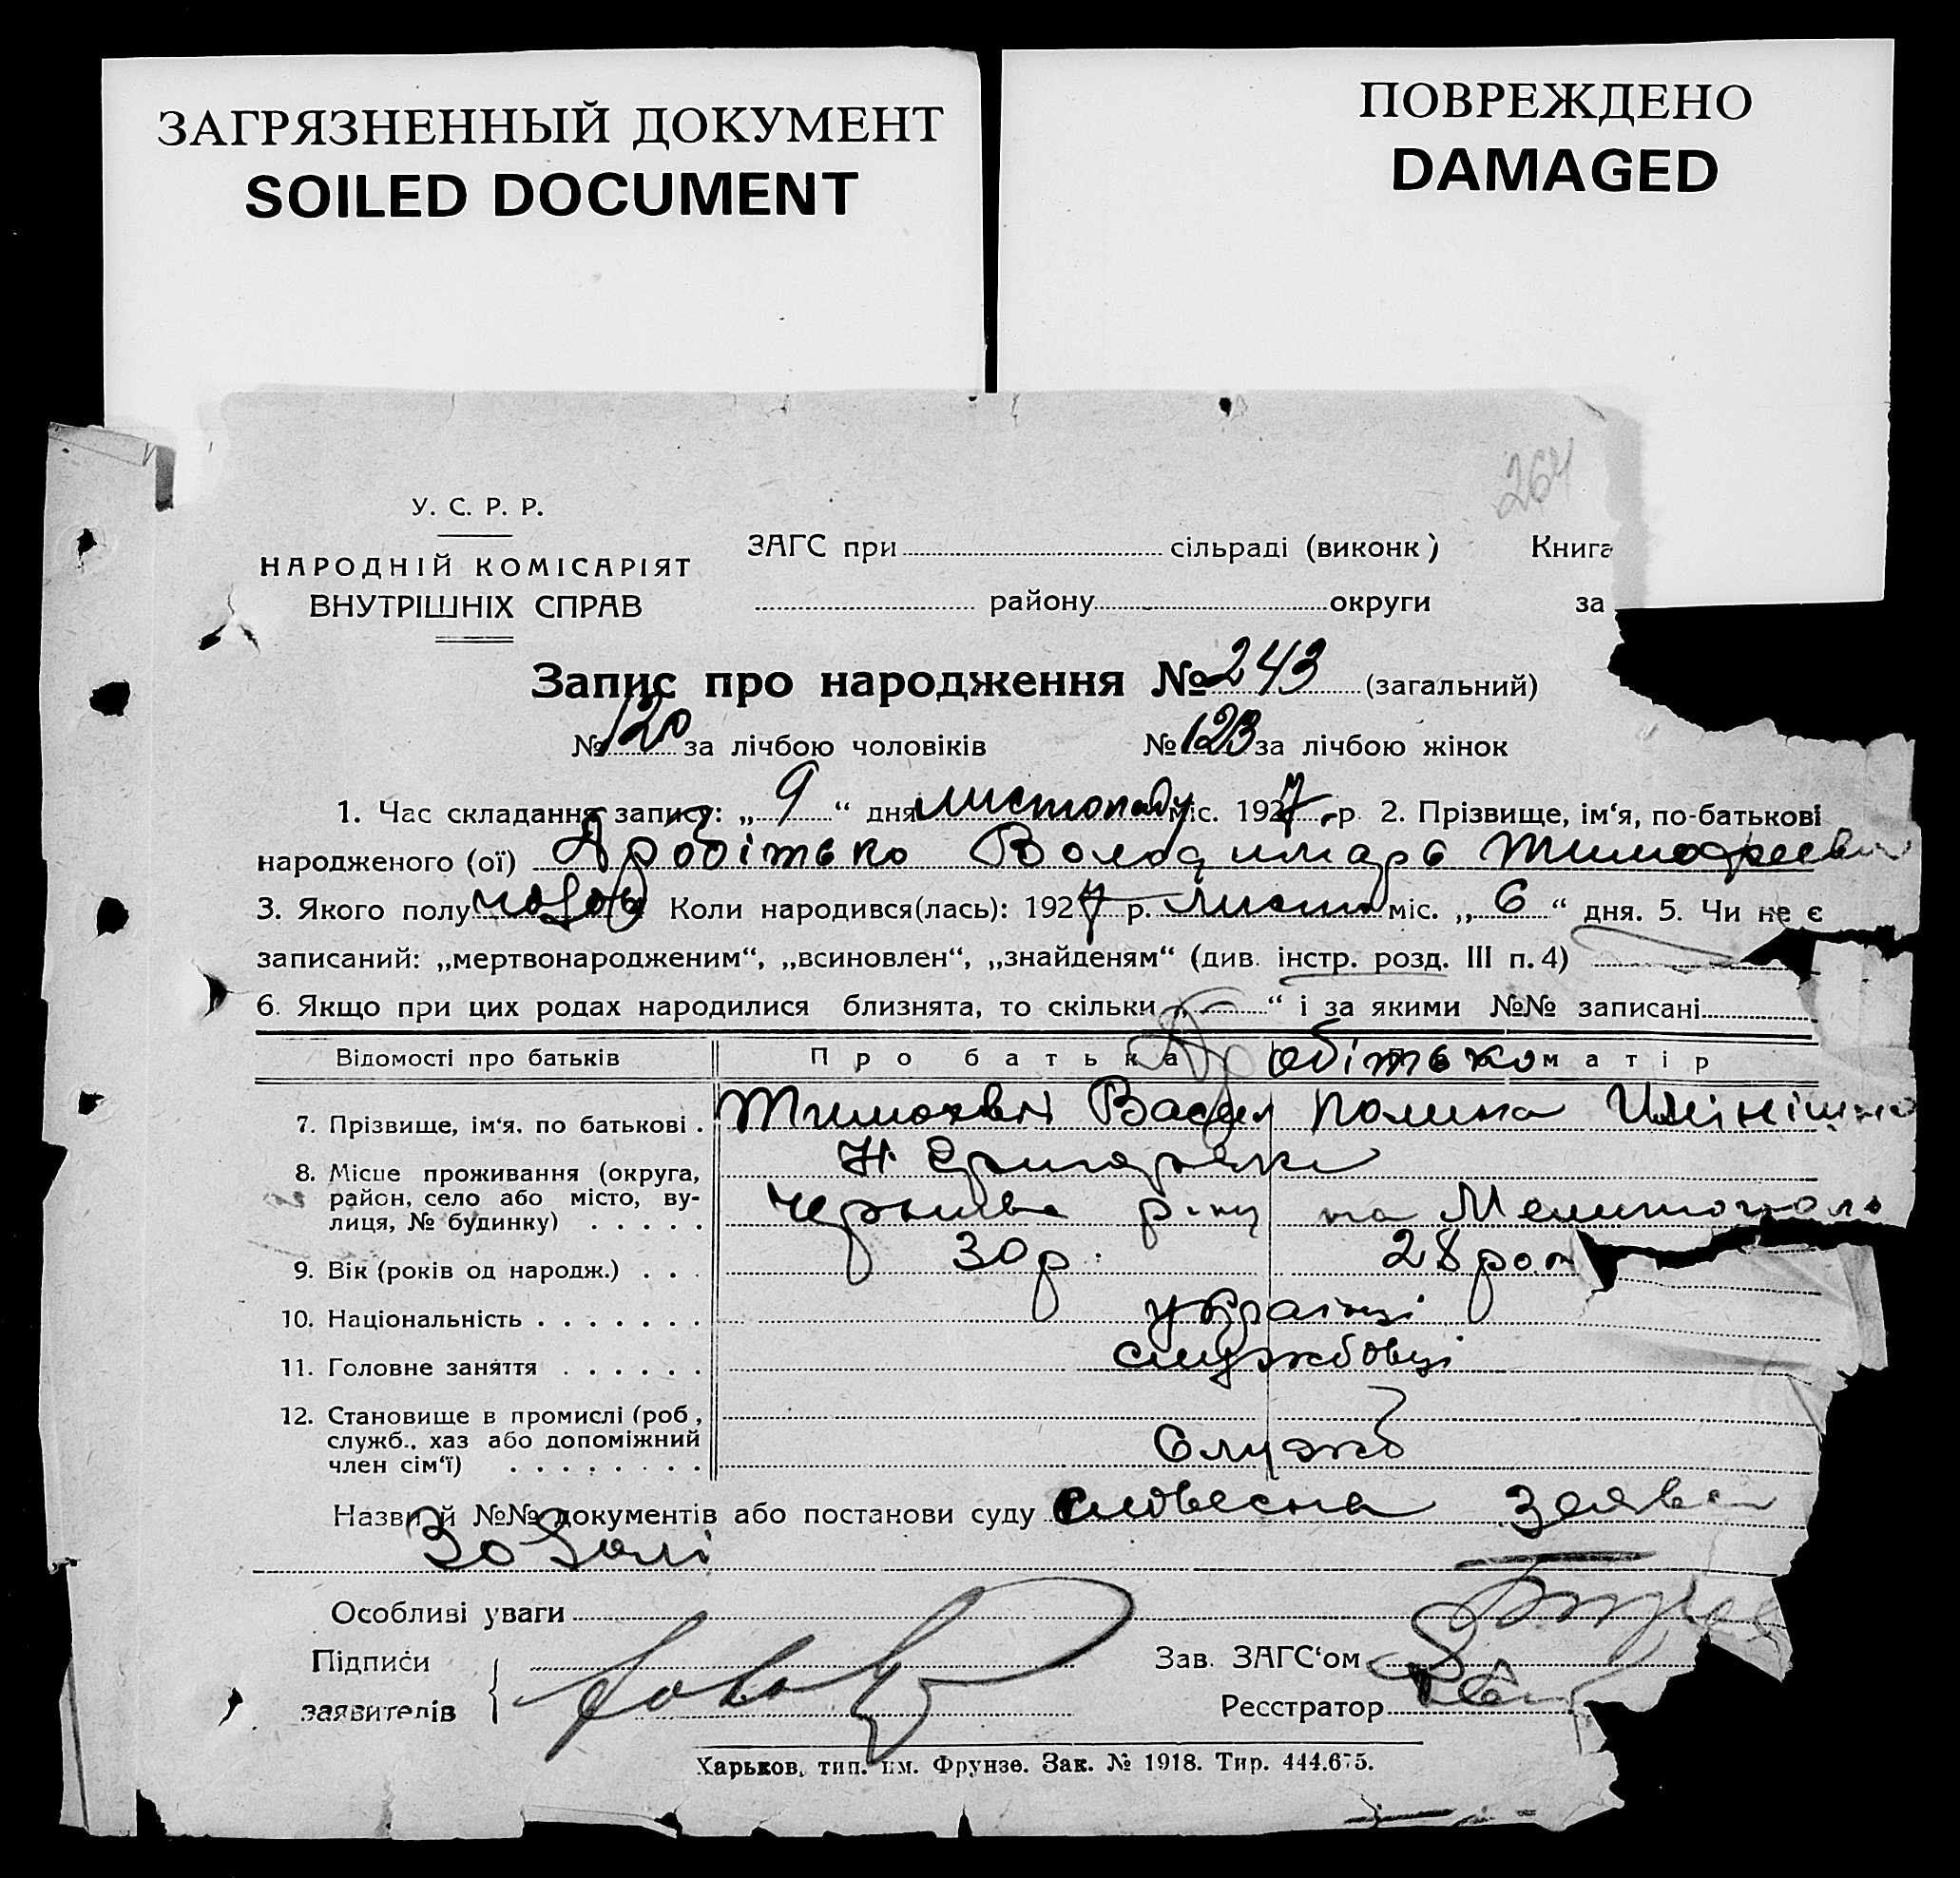 ЗАГРЯЗНЕННЫЙ ДОКУМЕНТ
SOILED DOCUMENT
ПОВРЕЖДЕНО
DAMAGED
264
У. С. Р. Р.
НАРОДНІЙ КОМІСАРІЯТ
ВНУТРІШНІХ СПРАВ
ЗАГС при сільраді (виконк) Книга
району округи за
Запис про народження № 243 (загальний)
№ 120 за лічбою чоловіків № 123 за лічбою жінок
1. Час складання запису: „ 9 “ дня листопаду міс. 1927 р. 2. Прізвище, ім‘я, по-батькові
народженого (ої) Дробітько Володимарь
3. Якого полу чолов Коли народився(лась): 1927 р. листоп міс. „ 6 “ дня. 5. Чи не є
записаний: „мертвонародженим“, „всиновлен“, „знайденям“ (див. інстр. розд. III п. 4)
6. Якщо при цих родах народилися близнята, то скільки „ “ і за якими №№ записані
Відомості про батьків Про батька Дробітько матір
7. Прізвище, ім‘я, по батькові Васил Полина
8. Місце проживання (округа,
район, село або місто, вулиця, № будинку) на
9. Вік (років од народж.) 30 р. 28 рок
10. Національність українці
11. Головне заняття службовці
12. Становище в промислі (роб,
служб., хаз або допоміжний
член сім‘ї) Служб
Назви й №№ документів або постанови суду словесна заява
Особливі уваги
Підписи
заявителів
Зав. ЗАГС‘ом
Реєстратор
Харьков, тип. им. Фрунзе. Зак. № 1918. Тир. 444.675.